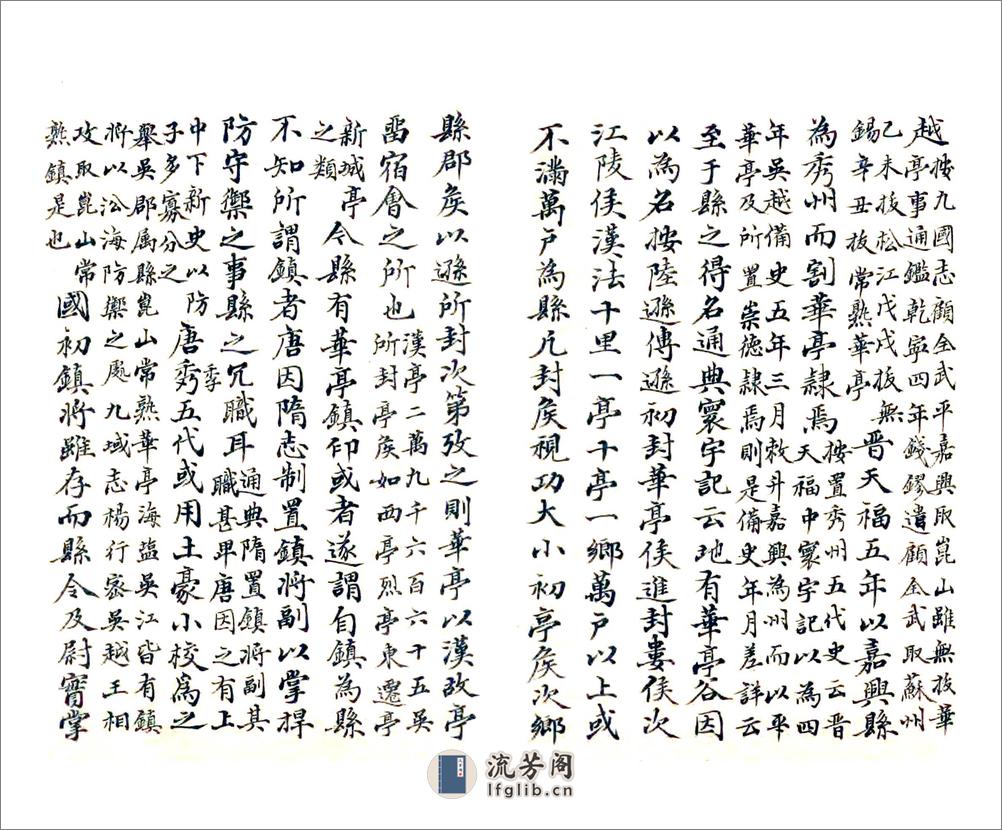 越
按九國志顧全武平嘉興取崑山雖無拔華
亭事通鑑乾寧四年錢鏐遣顧全武取蘇州
乙未拔松江戊戌拔無
錫辛丑拔常熟華亭
晉天福五年以嘉興縣
為秀州而割華亭隸焉
按置秀州五代史云晉
天福中寰宇記以為四
年吳越備史五年三月敕升嘉興為州而以平
華亭及所置崇德隸焉則是備史年月差詳云
至于縣之得名通典寰宇記云地有華亭谷因
以為名按陸遜傳遜初封華亭侯進封婁侯次
江陵侯漢法十里一亭十亭一鄉萬戶以上或
不滿萬戶為縣凡封侯視功大小初亭侯次鄉
縣郡侯以遜所封次第攷之則華亭以漢故亭
留宿會之所也
漢亭二萬九千六百六十五吳
所封亭侯如西亭烈亭東遷亭
新城亭
之類
今縣有華亭鎮印或者遂謂自鎮為縣
不知所謂鎮者唐因隋志制置鎮將副以掌捍
防守禦之事縣之冗職耳
通典隋置鎮將副其
職甚卑唐因之有上
中下新史以防
子多寡分之
唐秀季五代或用土豪小校為之
舉吳郡属縣崑山常熟華亭海塩吳江皆有鎮
將以㳂海防禦之處九域志楊行密吳越王相
攻取崑山常
熟鎮是也
國初鎮將雖存而縣令及尉實掌
流芳阁
lfglib.cn